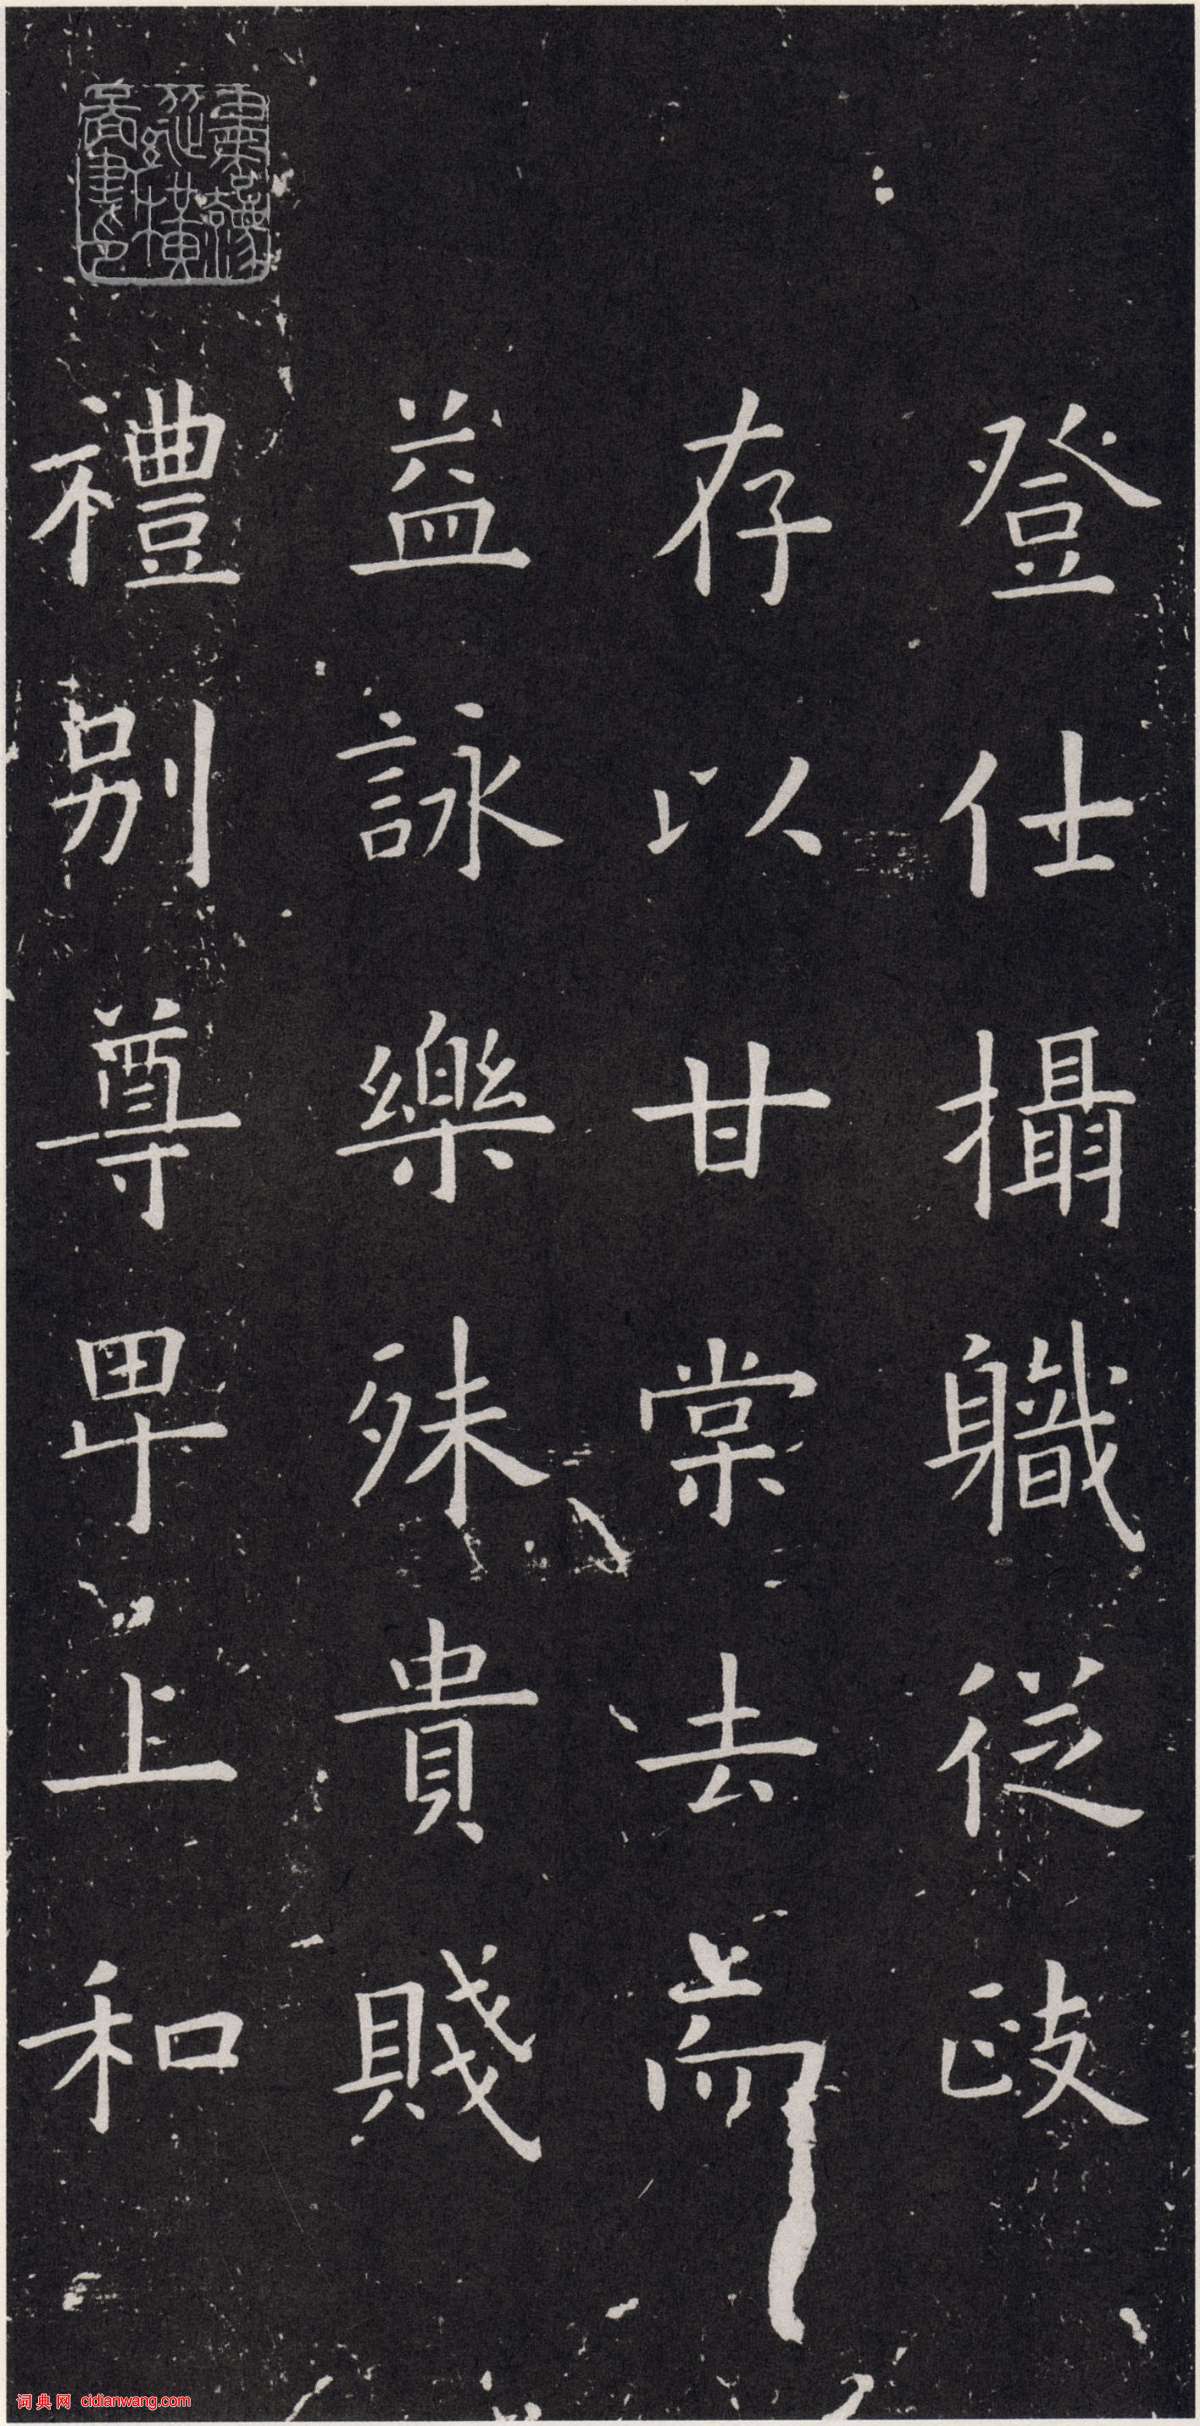 登仕攝職從政
存以甘棠去而
益詠樂殊貴賤
禮別尊卑上和
词典网 cidianwang.com